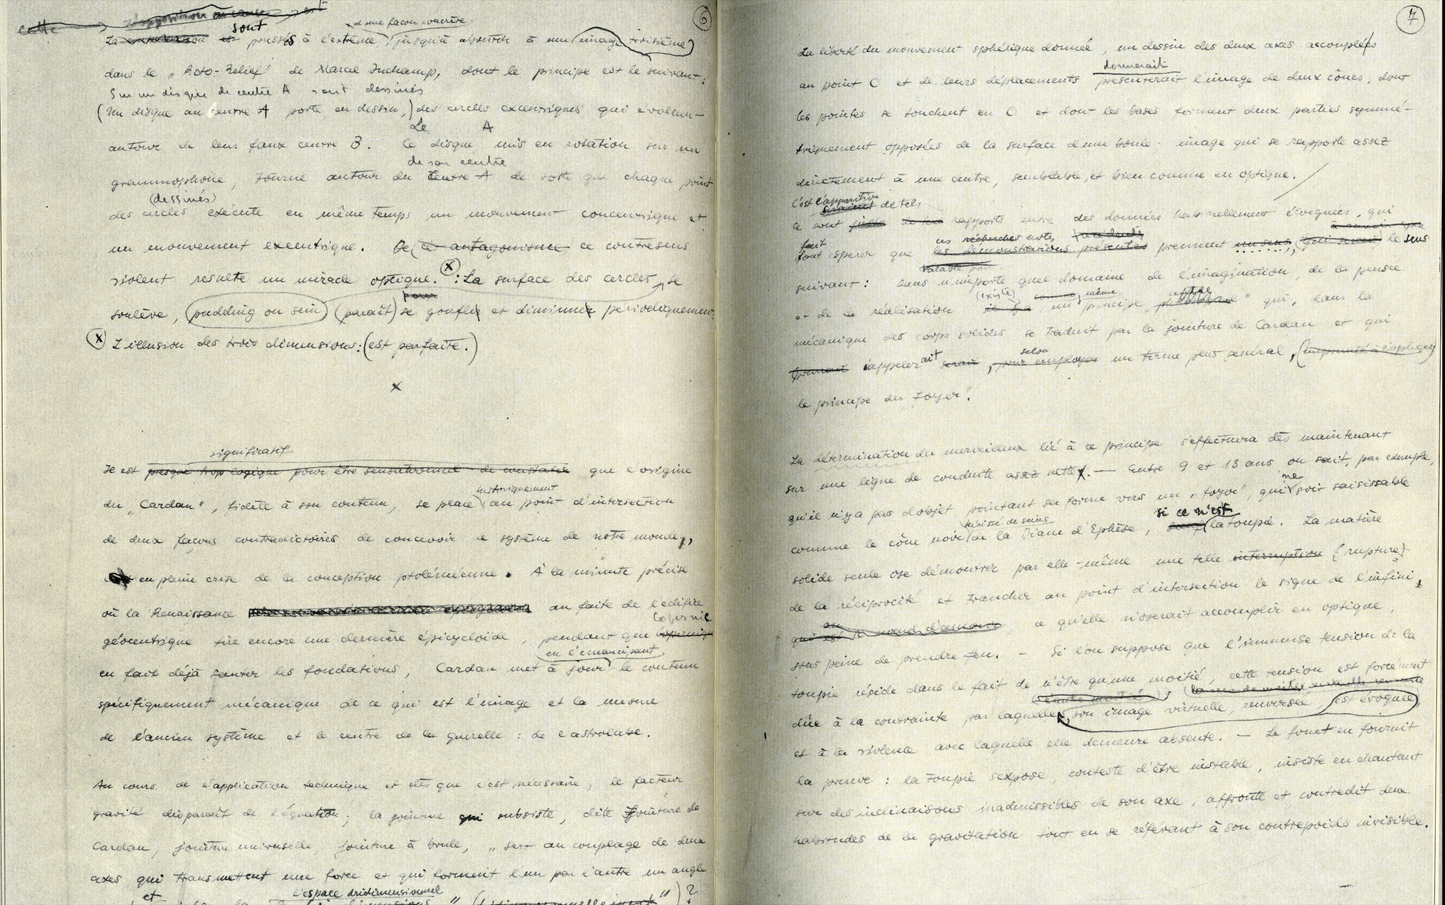 6
cette l'opposition ou cause est
d'une façon concrète
La conversion est sont poussés à l'extrême (jusqu'à aboutir à une image troisième)
dans le „Roto-Relief" de Marcel Duchamp, dont le principe est le suivant :
Sur un disque de centre A sont dessinés
(Un disque au centre A porte, en dessin,) des cercles excentriques qui évoluent
Le A
autour de leur faux centre B. Ce disque mis en rotation sur un
de son centre
grammophone, tourne autour du centre A de sorte que chaque point
(dessinés)
des cercles exécute en même temps un mouvement concentrique et
un mouvement excentrique. De (ce antagonisme ce contresens
violent résulte un miracle optique. (X) : La surface des cercles, se
soulève, (pudding ou sein) (parait) se gonfler et diminuer périodiquement
(X) L'illusion des trois dimensions : (est parfaite.)
x
significatif
Il est presque trop logique pour être sensationnel de constater que l'origine
historiquement
du „Cardan", fidèle à son contenu, se place au point d'intersection
de deux façons contradictoires de concevoir le système de notre monde,
en pleine crise de la conception ptolémienne. À la minute précise
où la Renaissance au faîte de l'édifice
Copernic
géocentrique tire encore une dernière épicycloïde, pendant que
en l'émancipant
en fait déjà sauter les fondations, Cardan met à jour le contenu
spécifiquement mécanique de ce qui est l'image et la mesure
de l'ancien système et le centre de la querelle : de l'astrolabe.
Au cours de l'application technique et dès que c'est nécessaire, le facteur
gravité disparaît de l'équation ; la jointure qui subsiste, dite Jointure de
Cardan, jointure universelle, jointure à boule, „ sert au couplage de deux
axes qui transmettent une force et qui forment l'un par l'autre un angle
et l'espace tridimensionnel
7
La liberté du mouvement sphérique donnée, un dessin des deux axes accouplés
donnerait
au point O et de leurs déplacements présenterait l'image de deux cônes, dont
les pointes se touchent en O et dont les bases forment deux parties symmé-
triquement opposées de la surface d'une boule : image qui se rapporte assez
directement à une autre, semblable, et bien connue en optique.
C'est l'apparition de tels
ce sont rapports entre des données habituellement éloignées, qui
fait ces recherches
font espérer que les démonstrations présentes prennent un sens, le sens
suivant : dans n'importe quel domaine de l'imagination, de la pensée
existe même
et de la réalisation un principe qui, dans la
mécanique des corps solides se traduit par la jointure de Cardan et qui
selon
s'appellerait serait, pour employer un terme plus général,
le principe du „Foyer".
La détermination du merveilleux lié à ce principe s'effectuera dès maintenant
sur une ligne de conduite assez nette. — Entre 9 et 13 ans on sait, par exemple,
ne
qu'il n'y a pas d'objet pointant sa forme vers un „foyer", qui soit saisissable
hérissé de seins si ce n'est
comme le cône noir de la Diane d'Ephèse, (la toupie. La matière
solide seule ose démontrer par elle-même une telle interruption (rupture)
de la réciprocité et trancher au point d'intersection le signe de l'infini,
ce qu'elle n'oserait accomplir en optique,
sous peine de prendre feu. — Si l'on suppose que l'immense tension de la
toupie réside dans le fait de n'être qu'une moitié, cette tension est forcément
dûe à la contrainte par laquelle son image virtuelle, renversée (est évoquée)
et à la violence avec laquelle elle demeure absente. — Le fouet en fournit
la preuve : la toupie s'expose, conteste d'être instable, insiste en chantant
sur des inclinaisons inadmissibles de son axe, affronte et contredit deux
habitudes de la gravitation tout en se référant à son contrepoids invisible.